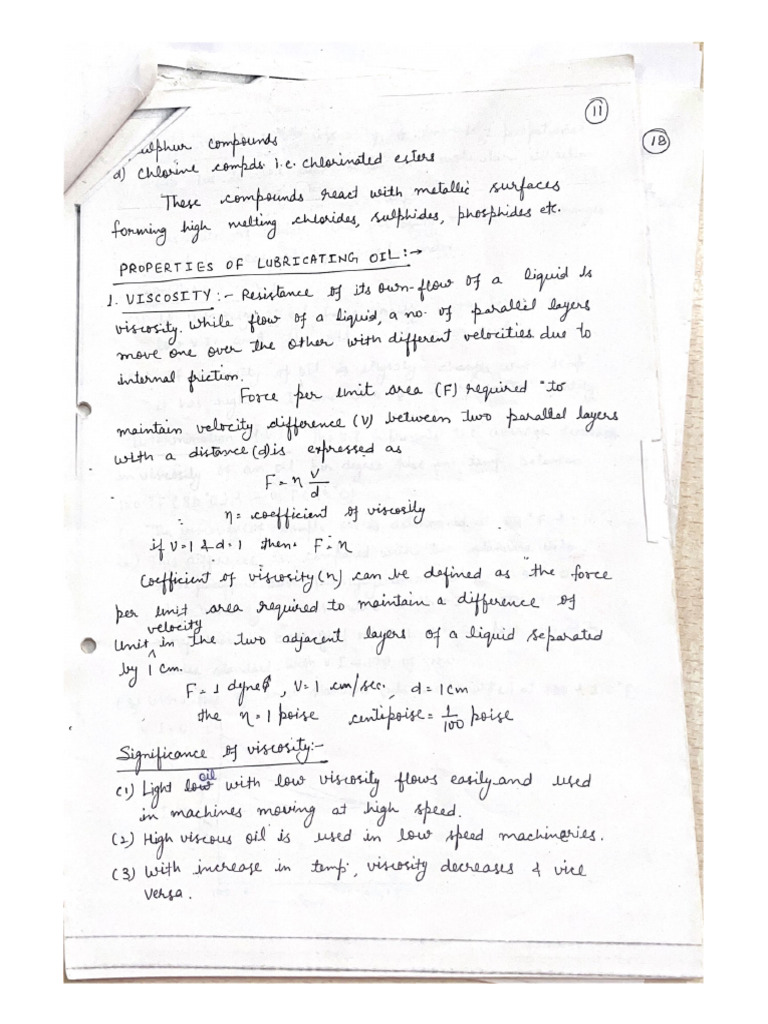 11
18
sulphur compounds
d) Chlorine compds i.e. chlorinated esters
These compounds react with metallic surfaces
forming high melting chlorides, sulphides, phosphides etc.
PROPERTIES OF LUBRICATING OIL:→
1. VISCOSITY :- Resistance of its own flow of a liquid is
viscosity. While flow of a liquid, a no. of parallel layers
move one over the other with different velocities due to
internal friction.
Force per unit area (F) required to
maintain velocity difference (V) between two parallel layers
with a distance (d) is expressed as
F = η V/d
η = coefficient of viscosity
if V=1 & d=1 then F = η
Coefficient of viscosity (η) can be defined as "the force
per unit area required to maintain a difference of
unit velocity in the two adjacent layers of a liquid separated
by 1 cm.
F = 1 dyne, V = 1 cm/sec., d = 1 cm
the η = 1 poise centipoise = 1/100 poise
Significance of viscosity:-
(1) Light oil with low viscosity flows easily and used
in machines moving at high speed.
(2) High viscous oil is used in low speed machineries.
(3) With increase in temp, viscosity decreases & vice
versa.